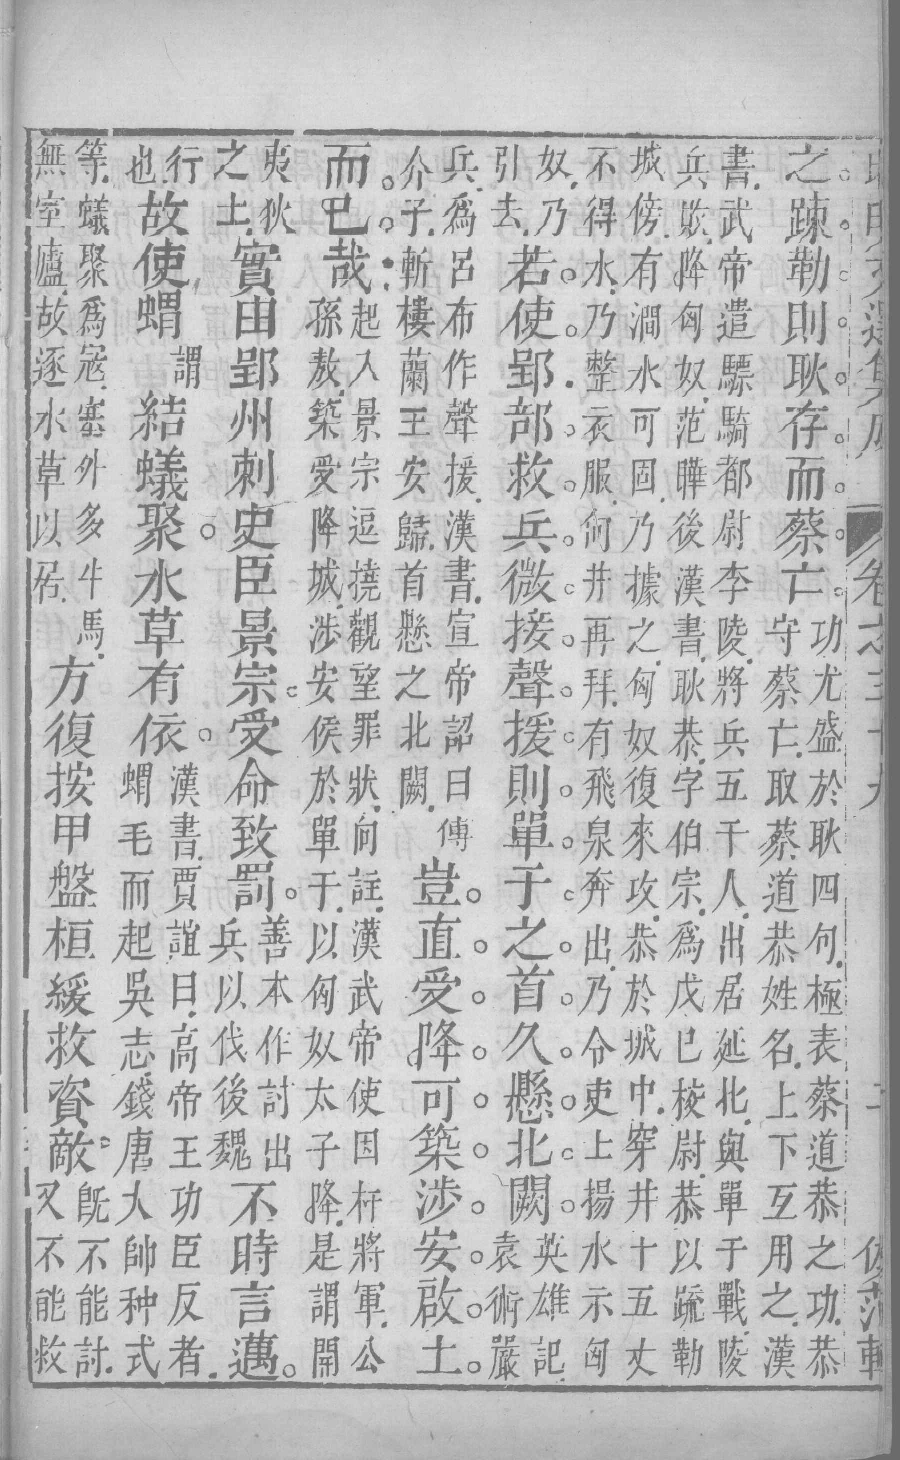 昭明文選集成 卷之三十九
之疎勒則耿存而蔡亡
功尤盛於耿四句極表蔡道恭之功恭
守蔡亡取蔡道恭姓名上下互用之漢
書武帝遣驃騎都尉李陵將兵五千人出居延北與單于戰陵
兵敗降匈奴范曄後漢書耿恭字伯宗爲戊己校尉恭以疏勒
城傍有澗水可固乃據之匈奴復來攻恭於城中穿井十五丈
不得水乃整衣服向井再拜有飛泉奔出乃令吏上揚水示匈
奴乃
引去
若使郢部救兵微接聲援則單于之首久懸北闕
英雄記
袁術嚴
兵爲呂布作聲援漢書宣帝詔曰傅
介子斬樓蘭王安歸首懸之北闕
豈直受降可築涉安啟土
而已哉
起入景宗逗撓觀望罪狀向註漢武帝使因杅將軍公
孫敖築受降城涉安侯於單于以匈奴太子降是謂開
夷狄
之土
實由郢州刺史臣景宗受命致罰
善本作討出
兵以伐後魏
不時言邁
行
也
故使蝟
謂
結蟻聚水草有依
漢書賈誼曰高帝王功臣反者
蝟毛而起吳志錢唐大帥种式
等蟻聚爲寇塞外多牛馬
無室廬故逐水草以居
方復按甲盤桓緩救資敵
既不能討
又不能救